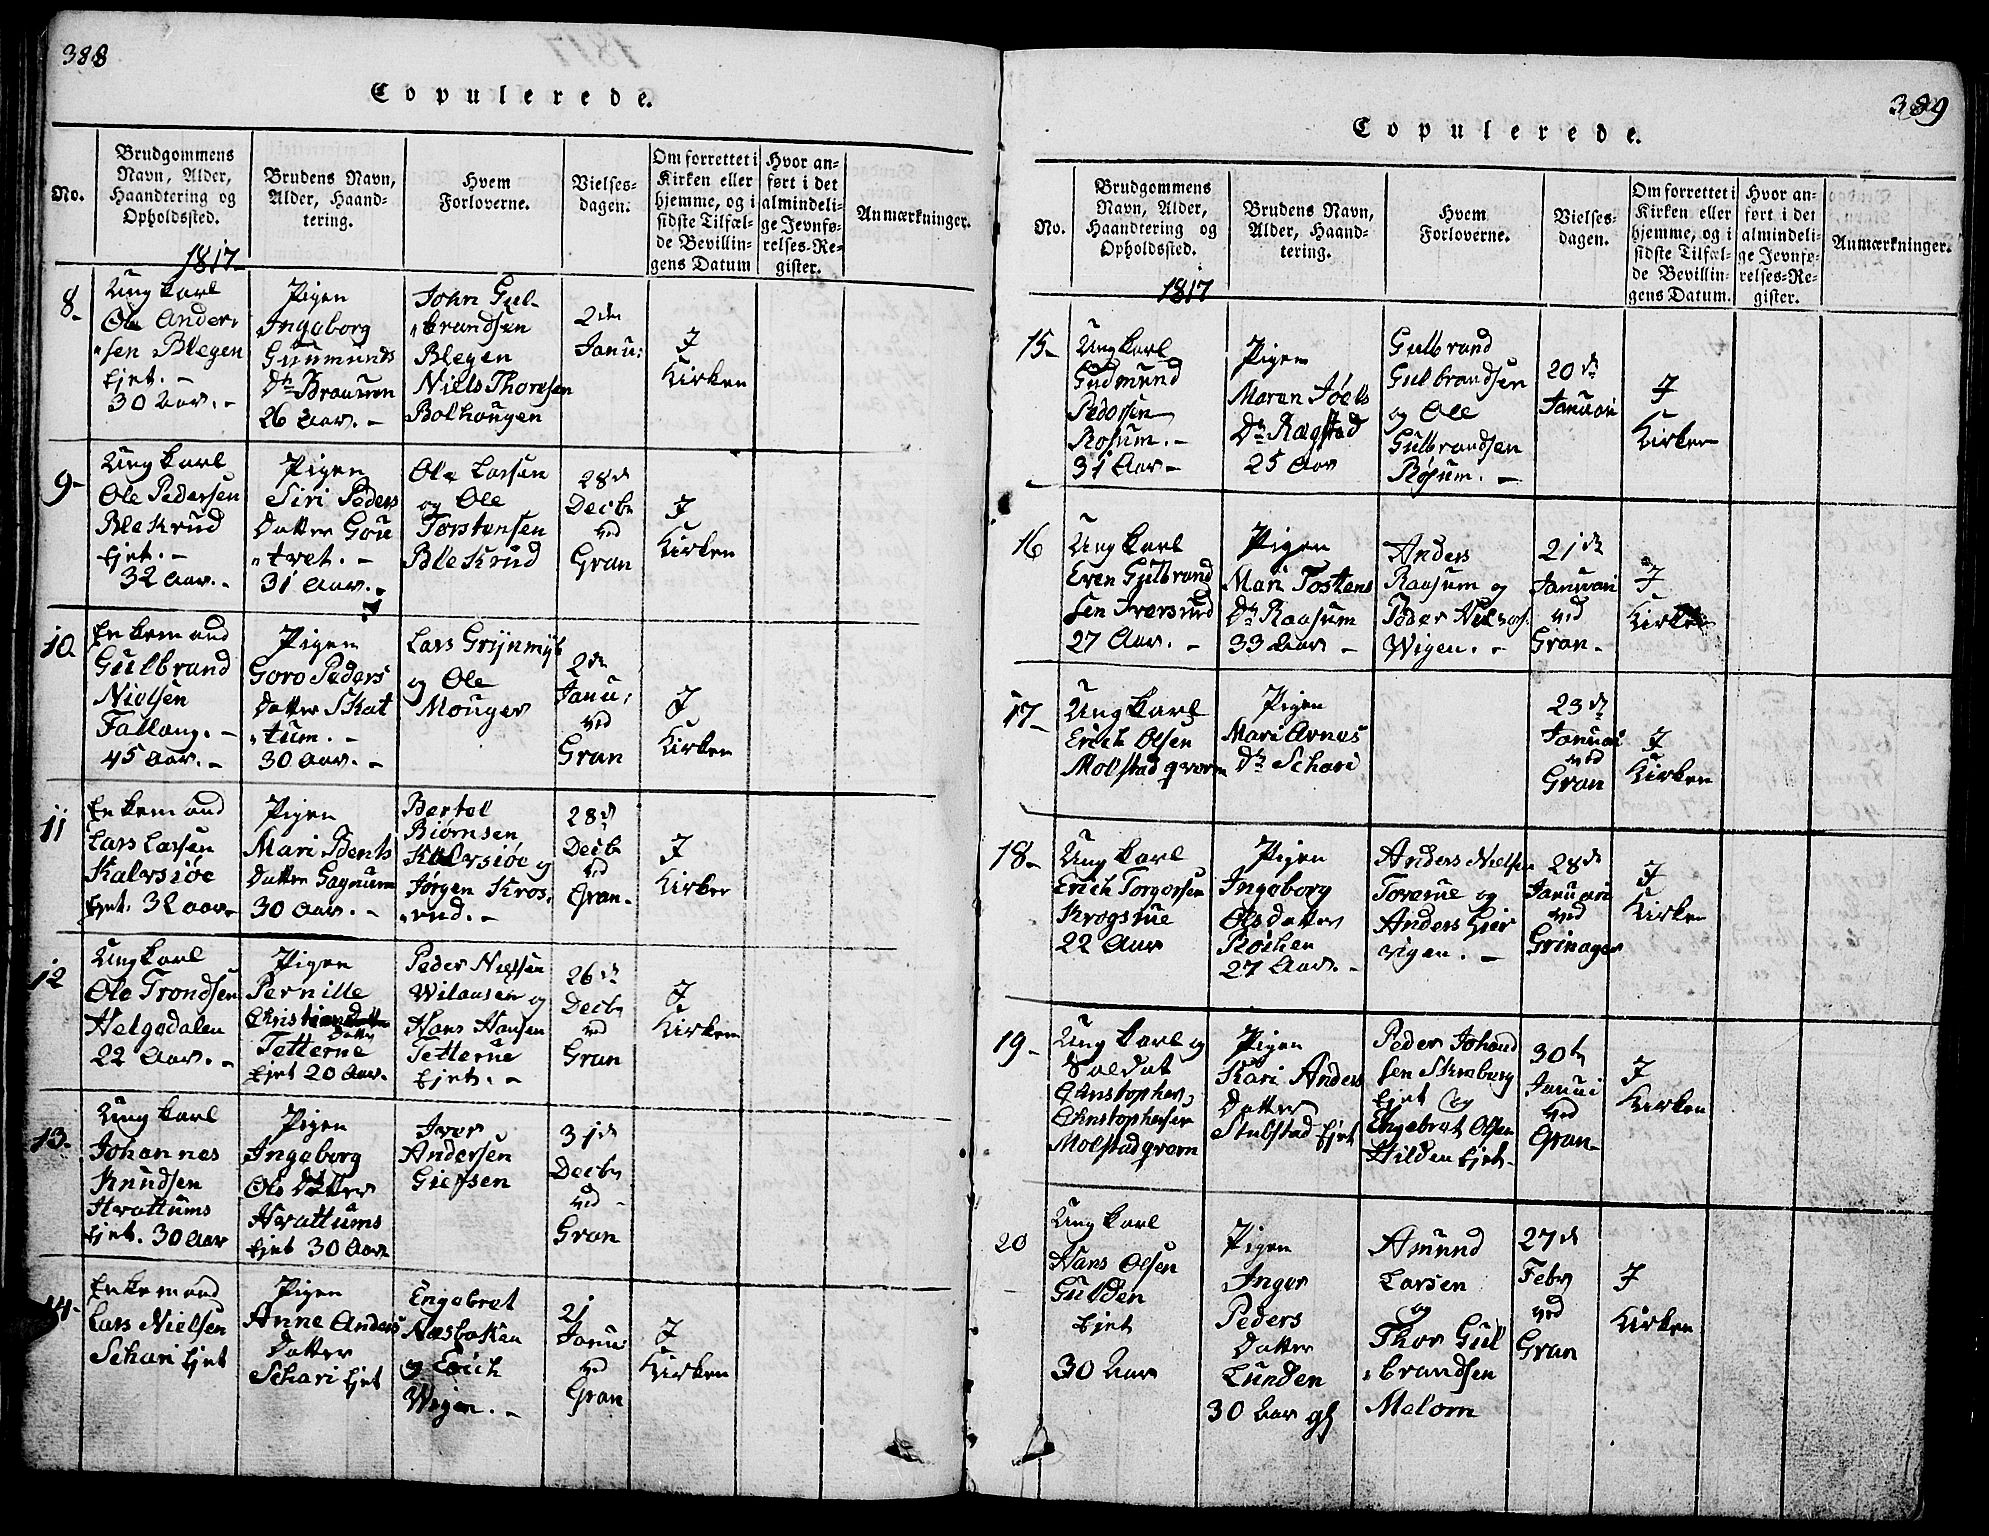 388
Copulerede.
No.
Brudgommens
Navn, Alder,
Haandtering og
Opholdssted.
Brudens Navn,
Alder, Haand-
tering.
Hvem
Forloverne.
Vielses-
dagen.
Om forrettet i
Kirken eller
hjemme, og i
sidste Tilfæl-
de Bevillin-
gens Datum
Hvor an-
ført i det
almindeli-
ge Jevnfø-
relses-Re-
gister.
Anmærkninger.
1817
8.
Ungkarl
Ole Ander-
sen Blegen
Ejet. -
30 Aar. -
Pigen
Ingeborg
Guumunds
Dtr Braaunn
26 Aar. -
John Gul-
brandsen
Blegen
Niels Thoresen
Bolhougen
2den
Janu:
I
Kirken
9-
Ungkarl
Ole Pedersen
Blekrud
Ejet. -
32 Aar. -
Pigen
Siri Peders
Datter Gou
tvet. -
31 Aar. -
Ole Larsen
og Ole
Torstensen
Blekrud
28de
Decbr
ved
Gran
I
Kirken
10.
Enkemand
Gulbrand
Nielsen
Fallang. -
45 Aar. -
Pigen
Goro Peders
Datter Skat
tum. -
30 Aar. -
Lars
og Ole
Mouger
2de
Janu:
ved
Gran
I
Kirken
11
Enkemand
Lars Larsen
Kalvsiøe
Ejet. 32 aar-
Pigen
Mari Bents
Datter Gagnum
30 Aar. -
Bertel
Biørnsen
Kalvsiøe og
Jørgen Kros-
rud. -
28de
Decbr
ved
Gran.
I
Kirken
12
Ungkarl
Ole Trondsen
Helgedalen
22 Aar. -
Pigen
Pernille
Christian
Datter
Tetterue
Ejet 20 Aar.
Peder Nielsen
Wilausen og
Hans Hansen
Tetterue
Ejet. -
26de
Decbr
ved
Gran
I
Kirken
13.
Ungkarl
Johannes
Knudsen
Hvattums
Ejet. 30 Aar
Pigen
Ingeborg
Ols Datter
Hvattums
Ejet 30 Aar
Iver
Andersen
Giefsen
31de
Decbr
ved
Gran
I
Kirken
14.
Enkemand
Lars Nielsen
Schari Ejet
Pigen
Anne Anders
Datter
Schari Ejet
Engebret
Næsbakken
og Erich
Wigen. -
21
Janu:
ved
Gran
I
Kirken
389
Copulerede.
No.
Brudgommens
Navn, Alder,
Haandtering og
Opholdssted.
Brudens Navn,
Alder, Haand-
tering.
Hvem
Forloverne.
Vielses-
dagen.
Om forrettet i
Kirken eller
hjemme, og i
sidste Tilfæl-
de Bevillin-
gens Datum.
Hvor an-
ført i det
almindeli-
ge Jevnfø-
relses-Re-
gister.
Anmærkninger.
1817
15-
Ungkarl
Gudmund
Pedersen
Røsum. -
31 Aar -
Pigen
Maren Joels
Dtr Ragstad
25 Aar
Gulbrand
Gulbrandsen
og Ole
Gulbrandsen
Røsum. -
20de
Januari
I
Kirken
16
Ungkarl
Even Gulbrand
sen Iversrud
27 Aar. -
Pigen
Mari Tostens
Dtr Raasum
33 Aar -
Anders
Raasum og
Peder Nils
Wigen. -
21de
Januari
ved
Gran.
I
Kirken
17-
Ungkarl
Erich Olsen
Molstadqvern
Pigen
Mari Arnes
Dtr Schari
23de
Januai
ved
Gran
I
Kirken
18-
Ungkarl
Erich Torgersen
Krogstue
22 Aar
Pigen
Ingeborg
Olsdatter
Røchen
27 Aar. -
Anders Nielsen
Toverue og
Anders Gier
vigen. -
28de
Januari
ved
Grinager
I
Kirken
19-
Ungkarl og
Soldat
Christopher
Christophersen
Molstadqvern
Pigen
Kari Anders
Datter
Stubstad Ejet
Peder Johand
sen Skraberg
Ejet og
Engebret Olsen
Hilden Ejet-
30te
Januri
ved
Gran-
I
Kirken
20
Ungkarl
Hans Olsen
Gulden
Ejet
30 Aar
Pigen
Inger
Peders
Datter
Lunden
30 Aar gl
Amund
Larsen
og
Thor Gul
brandsen
Melom
27de
Febr
ved
Gran
I
Kirken